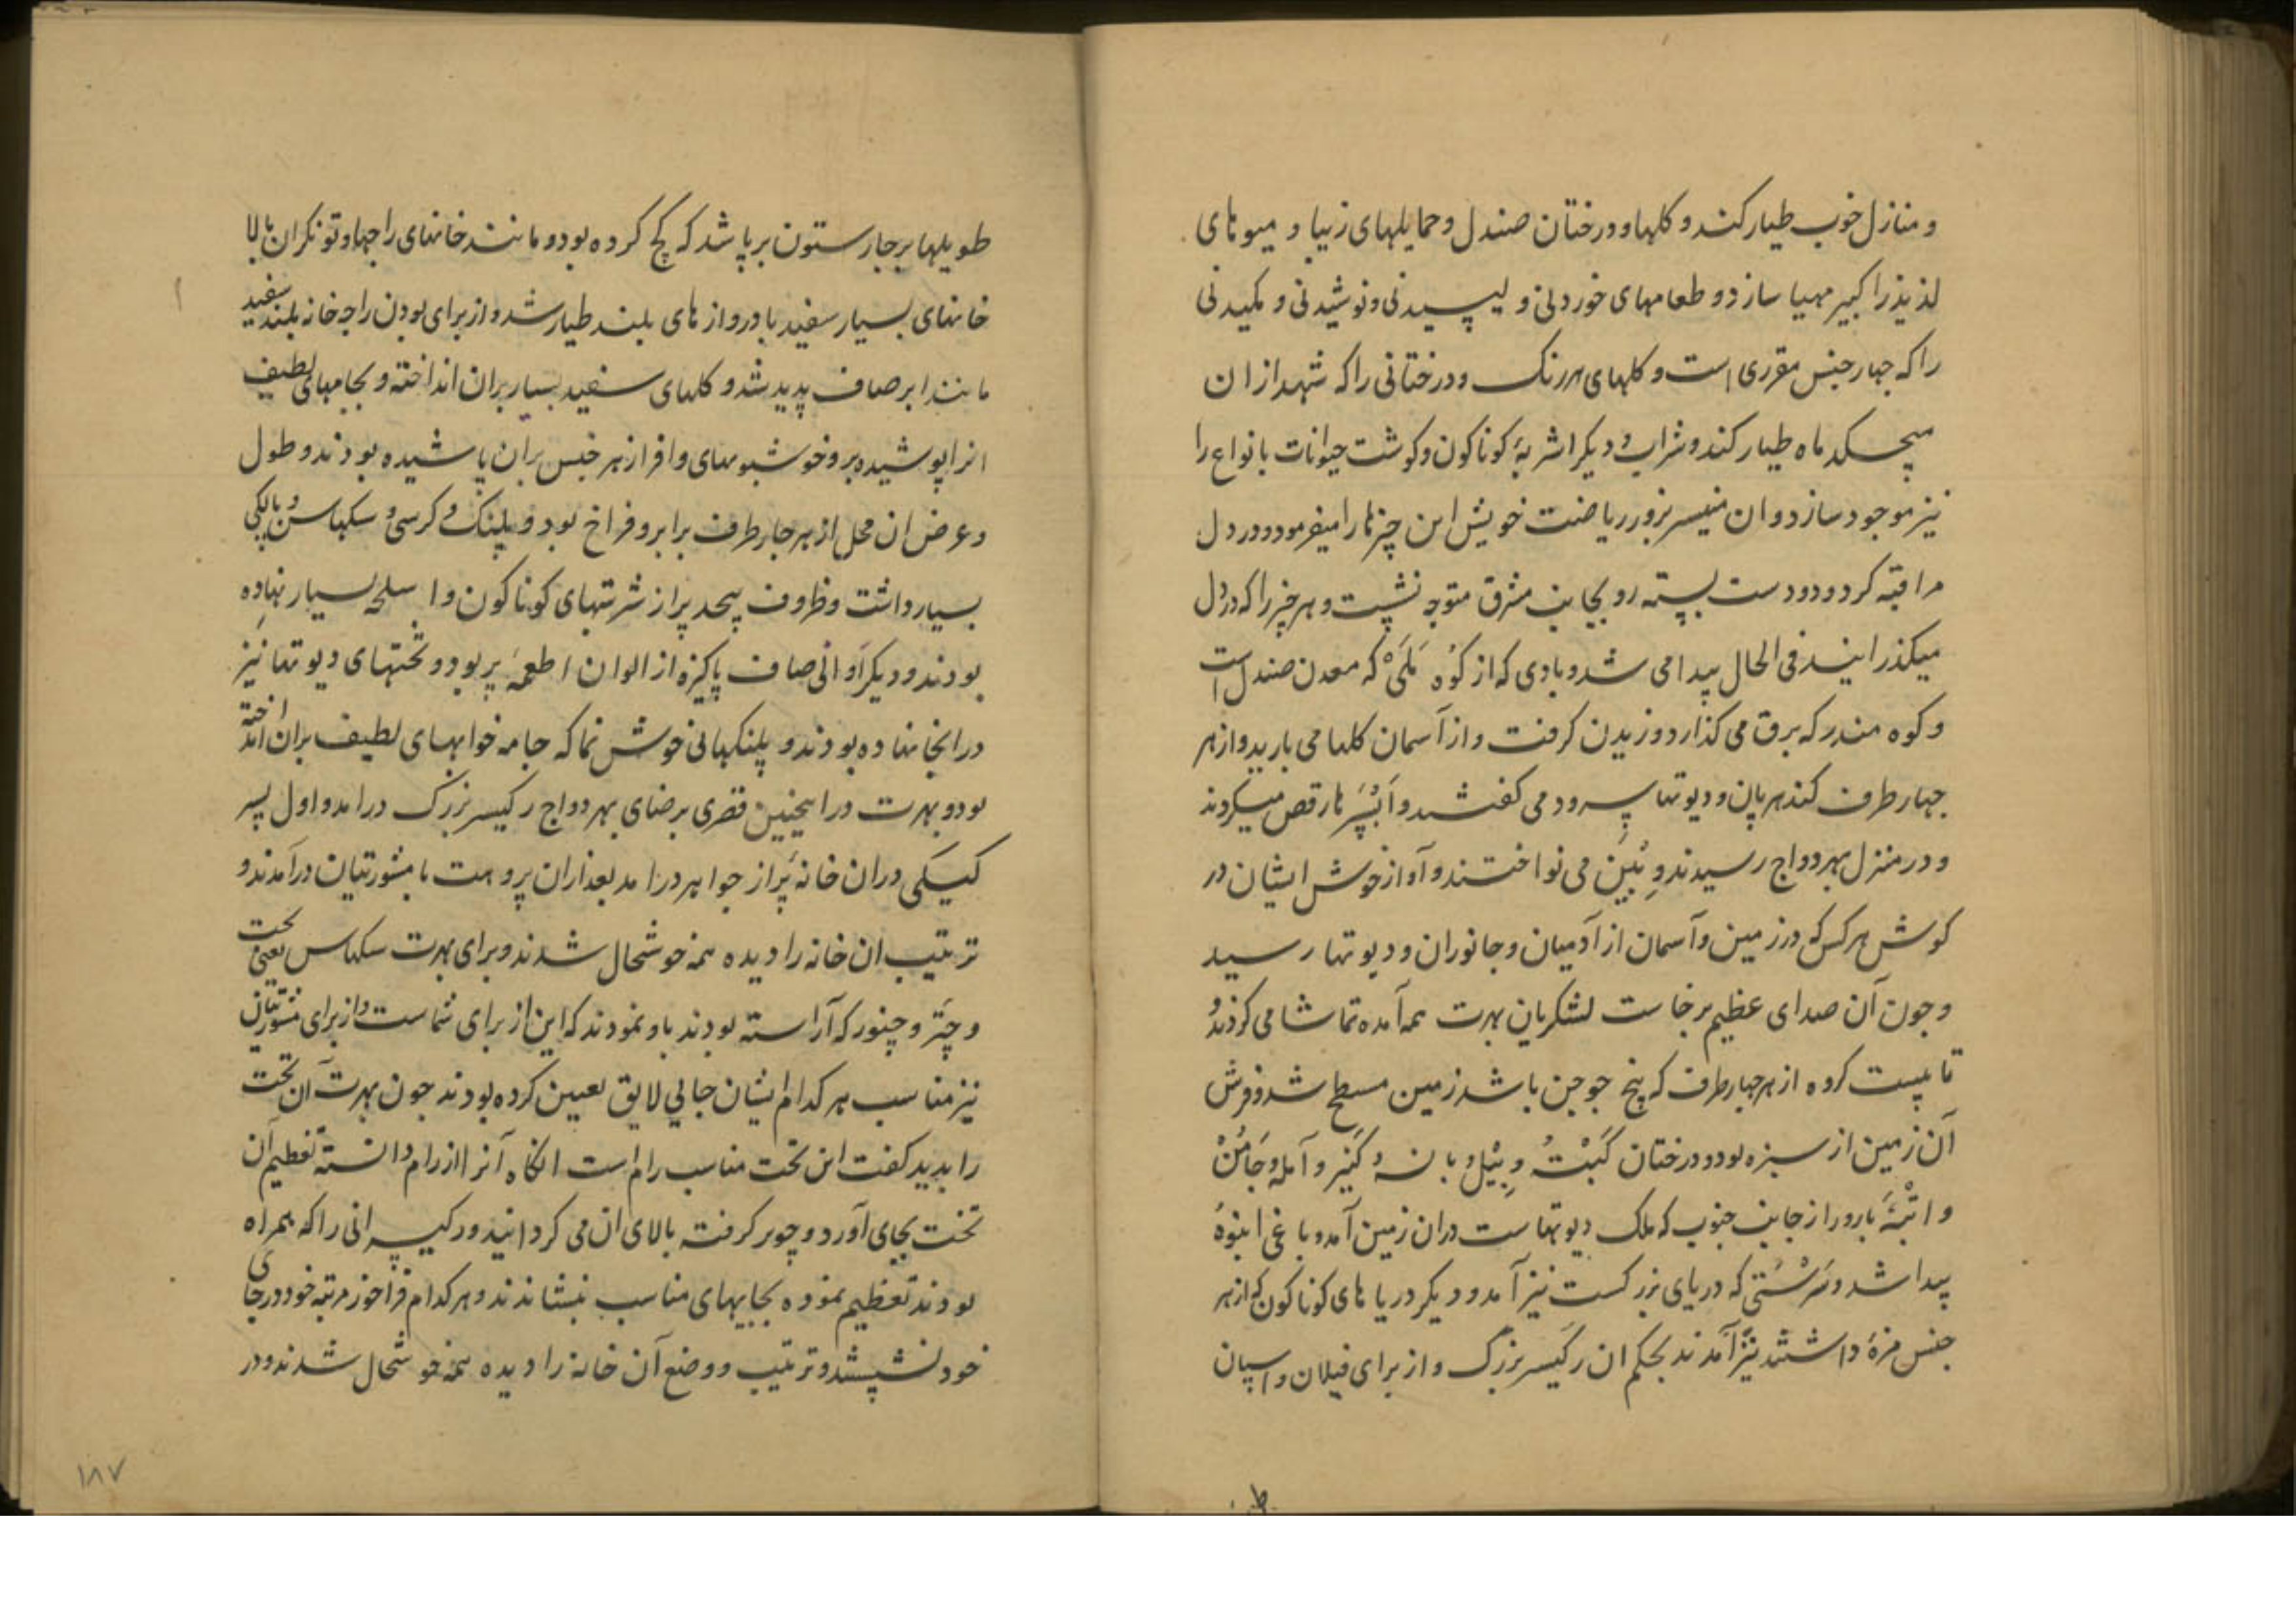 و منازل خوب طیار کند و کلها و درختان صندل و حمایلهای زیبا و میوهای
لذیذ را کبیر مهیا سازد و طعامهای خوردنی و لیسیدنی و نوشیدنی و مکیدنی
را که جهار جنس مقرری است و کلهای هر رنک و درختانی را که شهد از ان
میچکد ماه طیار کند و شراب و دیکر اشربهٔ کوناکون و کوشت حیوانات بانواع را
نیز موجود سازد و ان منیسر بزور ریاضت خویش این چیزها را میفرمود و در دل
مراقبه کرد و دو دست بسته رو بجانب مشرق متوجه نشست و هر چیز را که در دل
میکذرانید فی الحال پیدا می شد و بادی که از کوه مَلَی که معدن صندل است
و کوه مندر که برق می کذارد وزیدن کرفت و از آسمان کلها می بارید و از هر
جهار طرف کندهربان و دیوتها سرود می کفتند و اَپْسَرها رقص میکردند
و در منزل بهردواج رسیدند و بین می نواختند و آواز خوش ایشان در
کوش هر کس که در زمین و آسمان از آدمیان و جانوران و دیوتها رسید
و جون آن صدای عظیم برخاست لشکریان بهرت همه آمده تماشا می کردند
تا بیست کروه از هر جهار طرف که پنج جوجن باشد زمین مسطح شد و فرش
آن زمین از سبزه بود و درختان کَیتْ و بیل و بانسه و کنیر و آمله و جَامُنْ
و انبهٔ بارور از جانب جنوب که ملک دیوتهاست دران زمین آمد و باغی انبوه
پیدا شد و سَرْسَتی که دریای بزرکست نیز آمد و دیکر دریاهای کوناکون که از هر
جنس مزهٔ داشتند نیز آمدند بحکم ان رکیسر بزرک و از برای فیلان و اسپان
طو
طویلها بر جار ستون برپا شد که کچ کرده بود و مانند خانهای راجها و تونکران بالا
خانهای بسیار سفید با دروازهای بلند طیار شد و از برای بودن راجه خانه بلند سفید
مانند ابر صاف پدید شد و کلهای سفید بسیار بران انداخته و بجامهای لطیف
انرا پوشیده و خوشبویهای وافر از هر جنس بران پاشیده بودند و طول
و عرض ان محل از هر جار طرف برابر و فراخ بود و پلنک و کرسی و سکهاسن و پالکی
بسیار داشت و ظروف بیحد پر از شربتهای کوناکون و اسلحه بسیار نهاده
بودند و دیکر اوانی صاف پاکیزه از الوان اطعمه پر بود و تختهای دیوتها نیز
در انجا نهاده بودند و پلنکهائی خوش نما که جامه خوابهای لطیف بران انداخته
بود و بهرت در اینچنین قصری برضای بهردواج رکیسر بزرک درامد و اول پسر
کیکی دران خانه پر از جواهر درامد بعد ازان پروهت با مشورتیان درآمدند و
ترتیب ان خانه را دیده همه خوشحال شدند و برای بهرت سکهاسن یعنی تخت
و چتر و چنور که آراسته بودند باو نمودند که این از برای شماست و از برای مشورتیان
نیز مناسب هر کدام ایشان جائی لایق تعیین کرده بودند جون بهرت آن تخت
را بدید کفت این تخت مناسب رام است انکاه آنرا از رام دانسته تعظیم آن
تخت بجای آورد و چور کرفته بالای ان می کردانید و رکیسرانی را که همراه
بودند تعظیم نموده بجایهای مناسب بنشاندند و هر کدام فراخور مرتبه خود در جای
خود نشستند و ترتیب و وضع آن خانه را دیده همه خوشحال شدند و در
۱۸۷